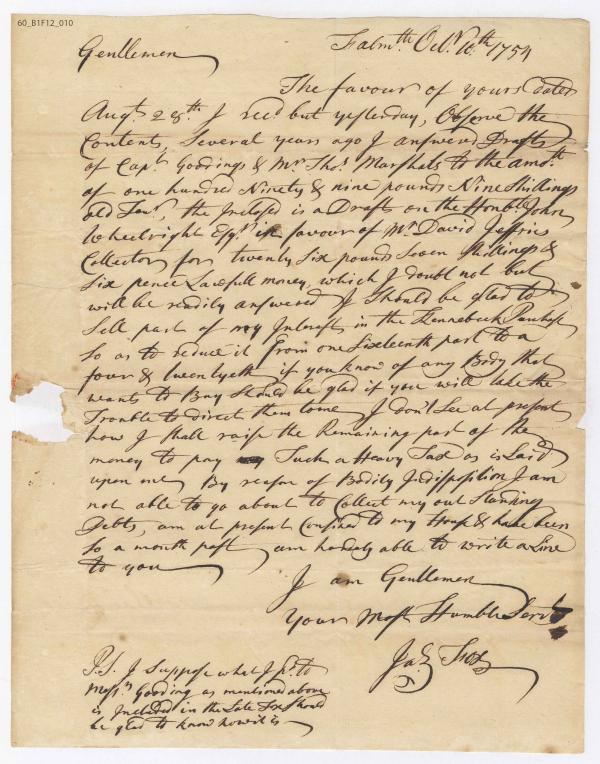 60_B1F12_010
Falmth. Octr. 10th. 1754
Gentlemen
The favour of yours dated
Augt. 28th. I recd. but yesterday, Observe the
Contents, Several years ago I answered Drafts
of Capt. Goodings & Mr. Thos. Marshals to the amot.
of one hundred Ninety & nine pounds Nine Shillings
old Tenr., the Inclosed is a Draft on the Honble. John
Wheelright Esqr. in favour of Mr. David Jeffries
Collector for twenty Six pounds Seven Shillings &
Six pence Lawfull money, which I doubt not but
will be readily answered I Should be glad to
Sell part of my Interest in the Kennebeck Purchase
So as to reduce it From one Sixteenth part to a
four & twentyeth if you know of any Body that
wants to Buy Should be glad if you will take the
Trouble to direct them to me I don't See at present
how I shall raise the Remaining part of the
money to pay Such a Heavy Tax as is Laid
upon me By reason of Bodily Indisposition I am
not able to go about to Collect my out Standing
Debts, am at present Confined to my House & have been
So a month past am hardely able to write a Line
to you
I am Gentlemen
Your Most Humble Servt.
Jaz. Fox
P.S. I Suppose what I pd. to
Messrs. Gooding as mentioned above
is Included in the Late Should
be glad to know how it is